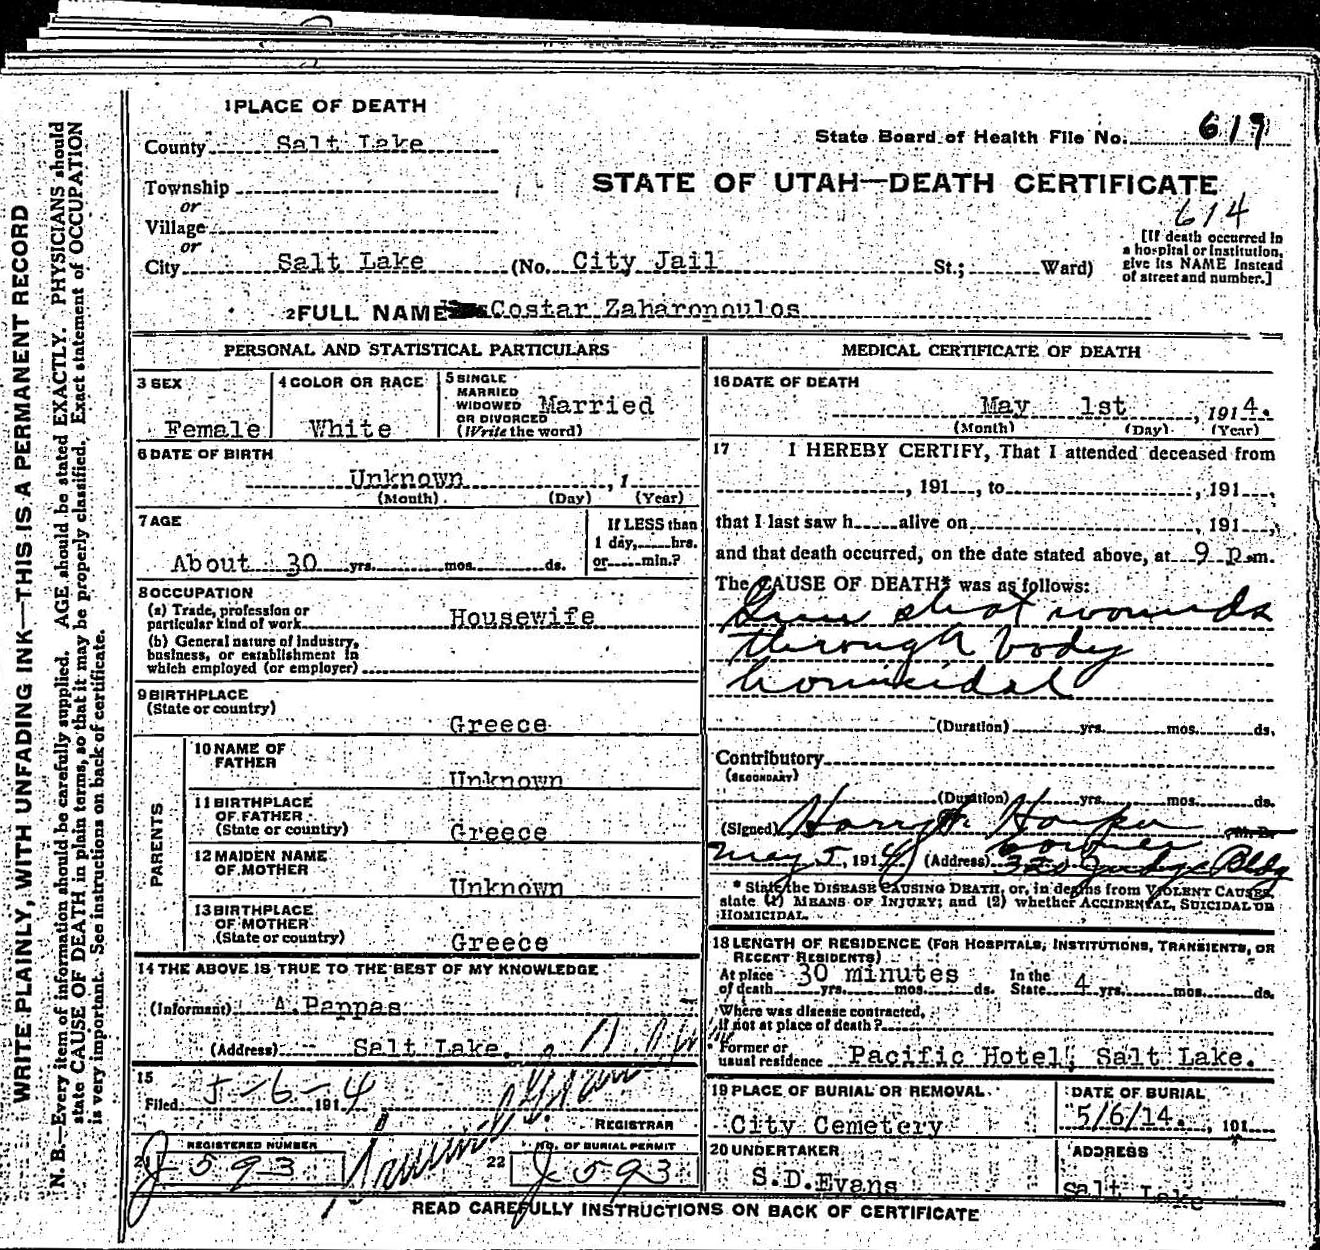 WRITE PLAINLY, WITH UNFADING INK—THIS IS A PERMANENT RECORD
N. B.—Every item of information should be carefully supplied. AGE should be stated EXACTLY. PHYSICIANS should
state CAUSE OF DEATH in plain terms, so that it may be properly classified. Exact statement of OCCUPATION
is very important. See instructions on back of certificate.
1 PLACE OF DEATH
County Salt Lake
State Board of Health File No. 619
Township
or
STATE OF UTAH—DEATH CERTIFICATE
614
Village
or
City Salt Lake (No. City Jail St.; Ward)
[If death occurred in
a hospital or institution,
give its NAME instead
of street and number.]
2 FULL NAME Costar Zaharopoulos
PERSONAL AND STATISTICAL PARTICULARS
3 SEX
Female
4 COLOR OR RACE
White
5 SINGLE
MARRIED
WIDOWED
OR DIVORCED
(Write the word)
Married
6 DATE OF BIRTH
Unknown , 1
(Month) (Day) (Year)
7 AGE
About 30 yrs. mos. ds.
If LESS than
1 day, hrs.
or min.?
8 OCCUPATION
(a) Trade, profession or
particular kind of work Housewife
(b) General nature of industry,
business, or establishment in
which employed (or employer)
9 BIRTHPLACE
(State or country)
Greece
PARENTS
10 NAME OF
FATHER
Unknown
11 BIRTHPLACE
OF FATHER
(State or country) Greece
12 MAIDEN NAME
OF MOTHER
Unknown
13 BIRTHPLACE
OF MOTHER
(State or country) Greece
14 THE ABOVE IS TRUE TO THE BEST OF MY KNOWLEDGE
(Informant) A.Pappas
(Address) Salt Lake.
15
Filed 5-6- 1914
REGISTRAR
21 REGISTERED NUMBER
J 593
22 NO. OF BURIAL PERMIT
J 593
MEDICAL CERTIFICATE OF DEATH
16 DATE OF DEATH
May 1st , 1914.
(Month) (Day) (Year)
17 I HEREBY CERTIFY, That I attended deceased from
, 191 , to , 191 ,
that I last saw h alive on , 191 ,
and that death occurred, on the date stated above, at 9 p.m.
The CAUSE OF DEATH* was as follows:
Gun shot wounds
through body
homicidal
(Duration) yrs. mos. ds.
Contributory
(SECONDARY)
(Duration) yrs. mos. ds.
(Signed) Harry Harper M. D.
Coroner
May 5, 1914 (Address) 320 Judge Bldg
* State the DISEASE CAUSING DEATH, or, in deaths from VIOLENT CAUSES,
state (1) MEANS OF INJURY; and (2) whether ACCIDENTAL, SUICIDAL OR
HOMICIDAL.
18 LENGTH OF RESIDENCE (FOR HOSPITALS, INSTITUTIONS, TRANSIENTS, OR
RECENT RESIDENTS)
At place
of death 30 minutes yrs. mos. ds. In the
State 4 yrs. mos. ds.
Where was disease contracted,
if not at place of death?
Former or
usual residence Pacific Hotel, Salt Lake.
19 PLACE OF BURIAL OR REMOVAL
City Cemetery
DATE OF BURIAL
5/6/14. , 191
20 UNDERTAKER
S.D.Evans
ADDRESS
Salt Lake
READ CAREFULLY INSTRUCTIONS ON BACK OF CERTIFICATE